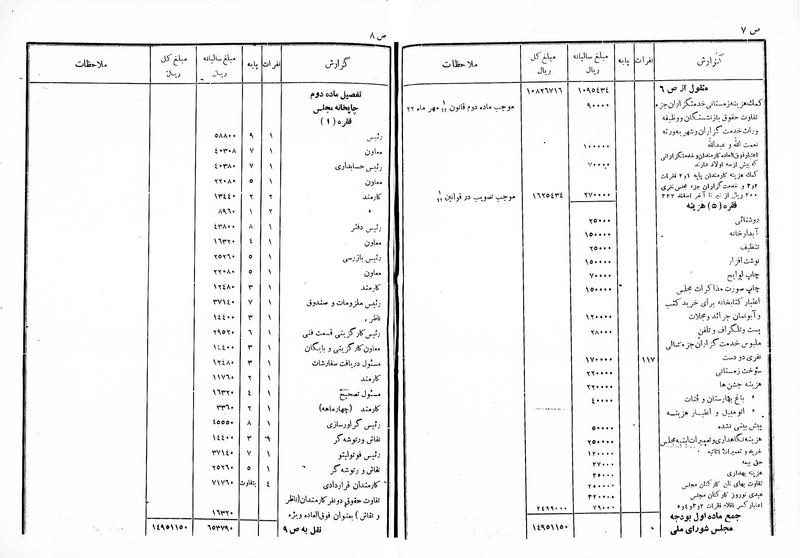 ص ۷
گزارش نفرات پایه مبلغ سالیانه ریال مبلغ کل ریال ملاحظات
منقول از ص ۶ ۱۰۹۵۴۳۴ ۱۰۸۲۶۷۱۶
کمك هزینه زمستانی خدمتگزاران جزء ۹۰۰۰۰ موجب ماده دوم قانون مهر ماه ۲۲
تفاوت حقوق بازنشستگان و وظیفه
وراث خدمت گزاران و شهریه ورثه
نعمت الله و عبدالله ۱۰۰۰۰۰
اعتبار فوق العاده کارمندان و خدمتگزارانی
که بیش از سه اولاد دارند ۷۰۰۰۰
کمك هزینه کارمندان پایه ۱و۲ فقرات
۲و۳ و خدمت گزاران جزء مجلس نفری
۲۰۰ ریال از تیر تا آخر اسفند ۳۲۲ ۲۷۰۰۰۰ ۱۶۲۵۴۳۴ موجب تصویب در قوانین
فقره (۵) هزینه
روشنائی ۲۵۰۰۰
آبدارخانه ۱۵۰۰۰۰
تنظیف ۲۵۰۰۰
نوشت افزار ۱۵۰۰۰۰
چاپ لوایح ۷۰۰۰۰
چاپ صورت مذاکرات مجلس ۱۵۰۰۰۰
اعتبار کتابخانه برای خرید کتب
و آبونمان جرائد و مجلات ۱۲۰۰۰۰
پست و تلگراف و تلفن ۲۸۰۰۰
ملبوس خدمت گزاران جزء سالی
نفری دو دست ۱۱۷ ۱۷۰۰۰۰
سوخت زمستانی ۲۲۰۰۰۰
هزینه جشن ها ۲۲۰۰۰۰
» باغ بهارستان و قنات ۴۰۰۰۰
» اتومبیل و اعتبار هزینه
پیش بینی نشده ۵۰۰۰۰
هزینه نگاهداری و تعمیرات ابنیه مجلس ۲۵۰۰۰۰
خرید و تعمیرات اثاثیه ۱۲۰۰۰۰
حق بیمه ۲۷۰۰۰
هزینه بهداری ۳۵۰۰۰
تفاوت بهای نان کارکنان مجلس
عیدی نوروز کارکنان مجلس ۳۲۰۰۰۰
اعتبار کسر اقلام فقرات ۲و۳و۴و۵ ۷۹۰۰۰ ۲۴۹۹۰۰۰
جمع ماده اول بودجه
مجلس شورای ملی ۱۴۹۵۱۱۵۰
ص ۸
گزارش نفرات پایه مبلغ سالیانه ریال مبلغ کل ریال ملاحظات
تفصیل ماده دوم
چاپخانه مجلس
فقره (۱)
رئیس ۱ ۹ ۵۸۸۰۰
معاون ۱ ۷ ۴۰۳۰۸
رئیس حسابداری ۱ ۷ ۴۰۳۸۰
معاون ۱ ۵ ۲۲۰۸۰
کارمند ۲ ۲ ۱۳۴۴۰
» ۲ ۱ ۸۹۶۰
رئیس دفتر ۱ ۸ ۴۳۸۰۰
معاون ۱ ۴ ۱۶۳۲۰
رئیس بازرسی ۱ ۵ ۲۵۲۶۰
معاون ۱ ۵ ۲۲۰۸۰
کارمند ۱ ۳ ۱۲۴۸۰
رئیس ملزومات و صندوق ۱ ۷ ۳۷۱۴۰
ناظر ۱ ۳ ۱۴۴۰۰
رئیس کارگزینی قسمت فنی ۱ ۶ ۲۹۵۲۰
معاون کارگزینی و بایگان ۱ ۳ ۱۴۴۰۰
مسئول دریافت سفارشات ۱ ۳ ۱۲۴۸۰
کارمند ۱ ۲ ۱۱۷۶۰
مسئول تصحیح ۱ ۴ ۱۶۳۲۰
کارمند (چهارماهه) ۱ ۲ ۳۳۶۰
رئیس گراورسازی ۱ ۸ ۴۵۵۵۰
نقاش و رتوشه گر ۳ ۱۴۴۰۰
رئیس فوتولیتو ۱ ۷ ۳۷۱۴۰
نقاش و رتوشه گر ۱ ۵ ۲۵۲۶۰
کارمندان قراردادی ۴ بتفاوت ۷۱۷۶۰
تفاوت حقوق دو نفر کارمندان (ناظر
و نقاش) بعنوان فوق العاده ویژه ۱۶۳۲۰
نقل به ص ۹ ۶۵۳۷۹۰ ۱۴۹۵۱۱۵۰